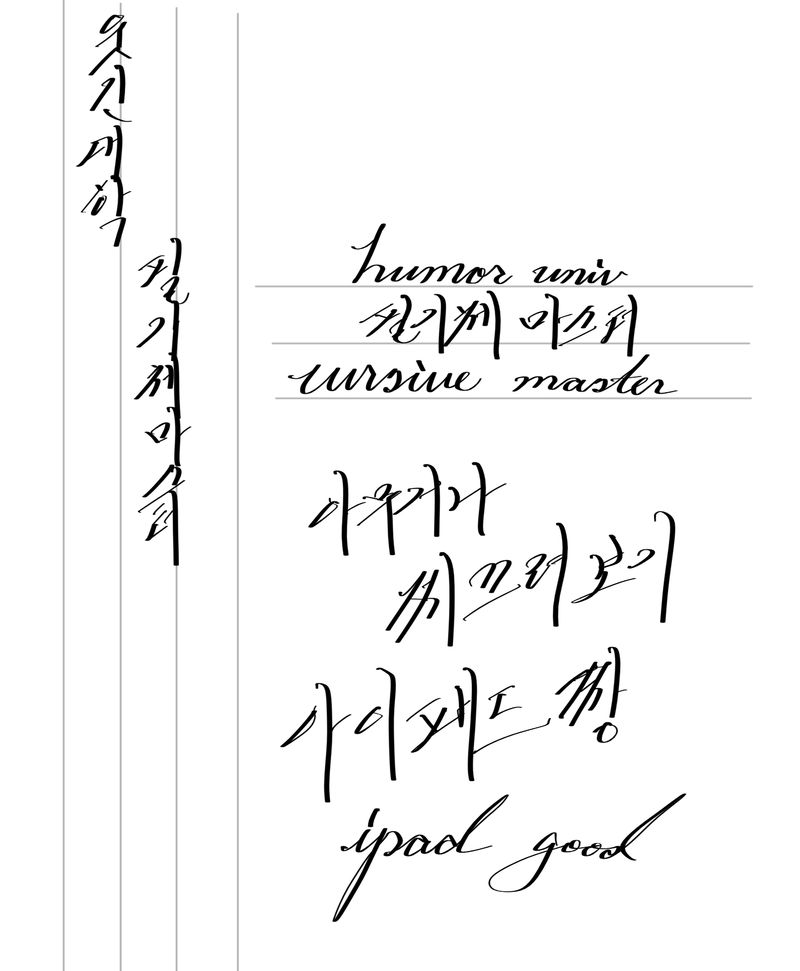 웃긴대학
필기체마스터
humor univ
필기체 마스터
cursive master
아무거나
찌끄려보기
아이패드 짱
ipad good